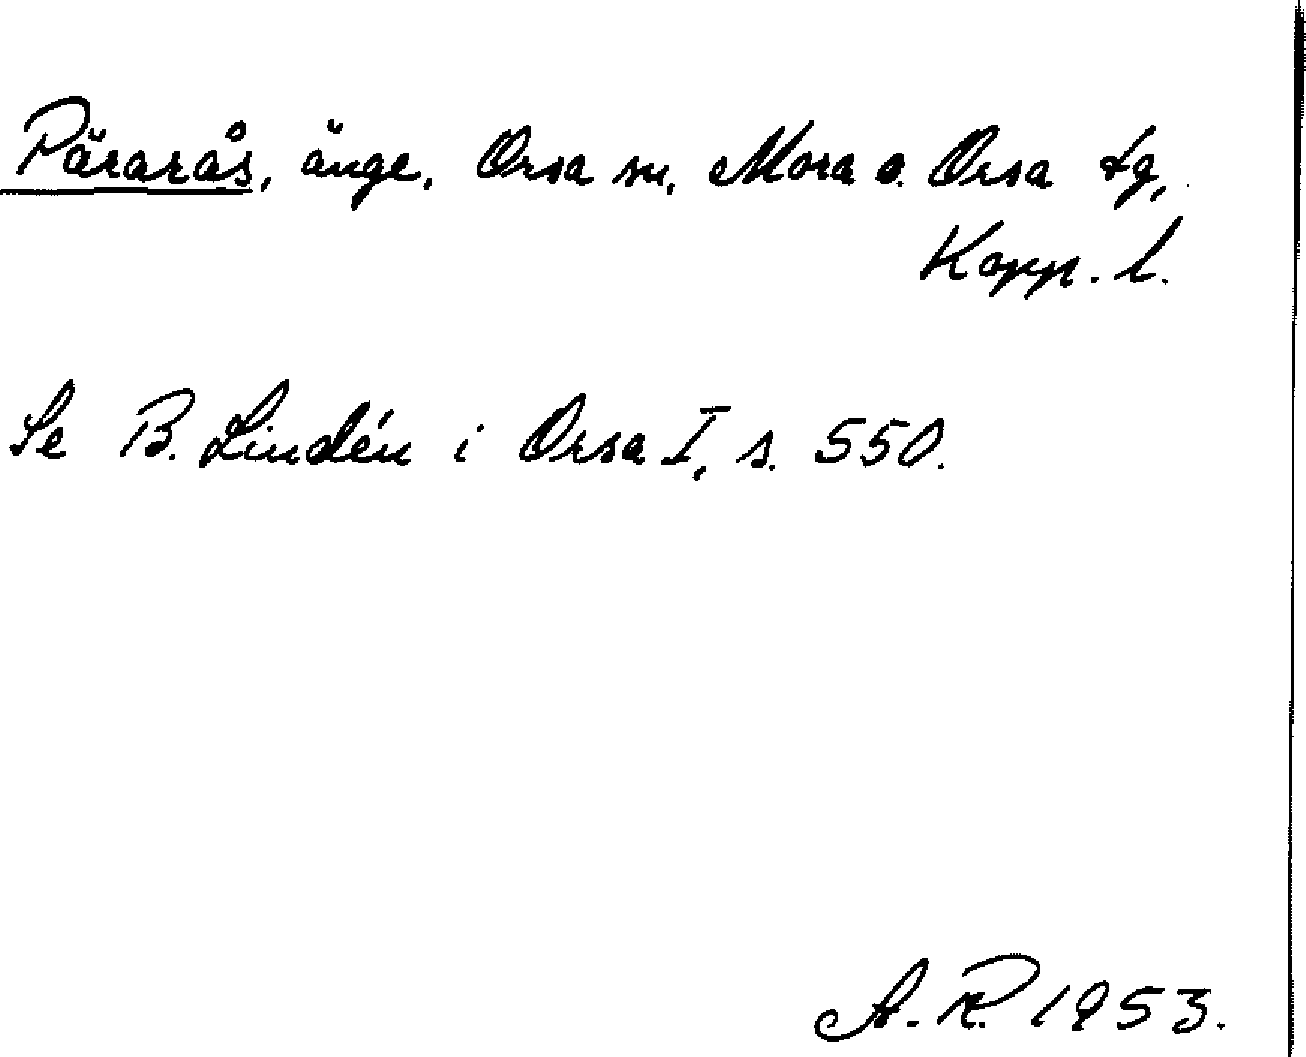 Pärarås, änge, Orsa sn, Mora o. Orsa tg,
Kopp. l.
Se B. Lindén i Orsa I, s. 550.
A. R. 1953.